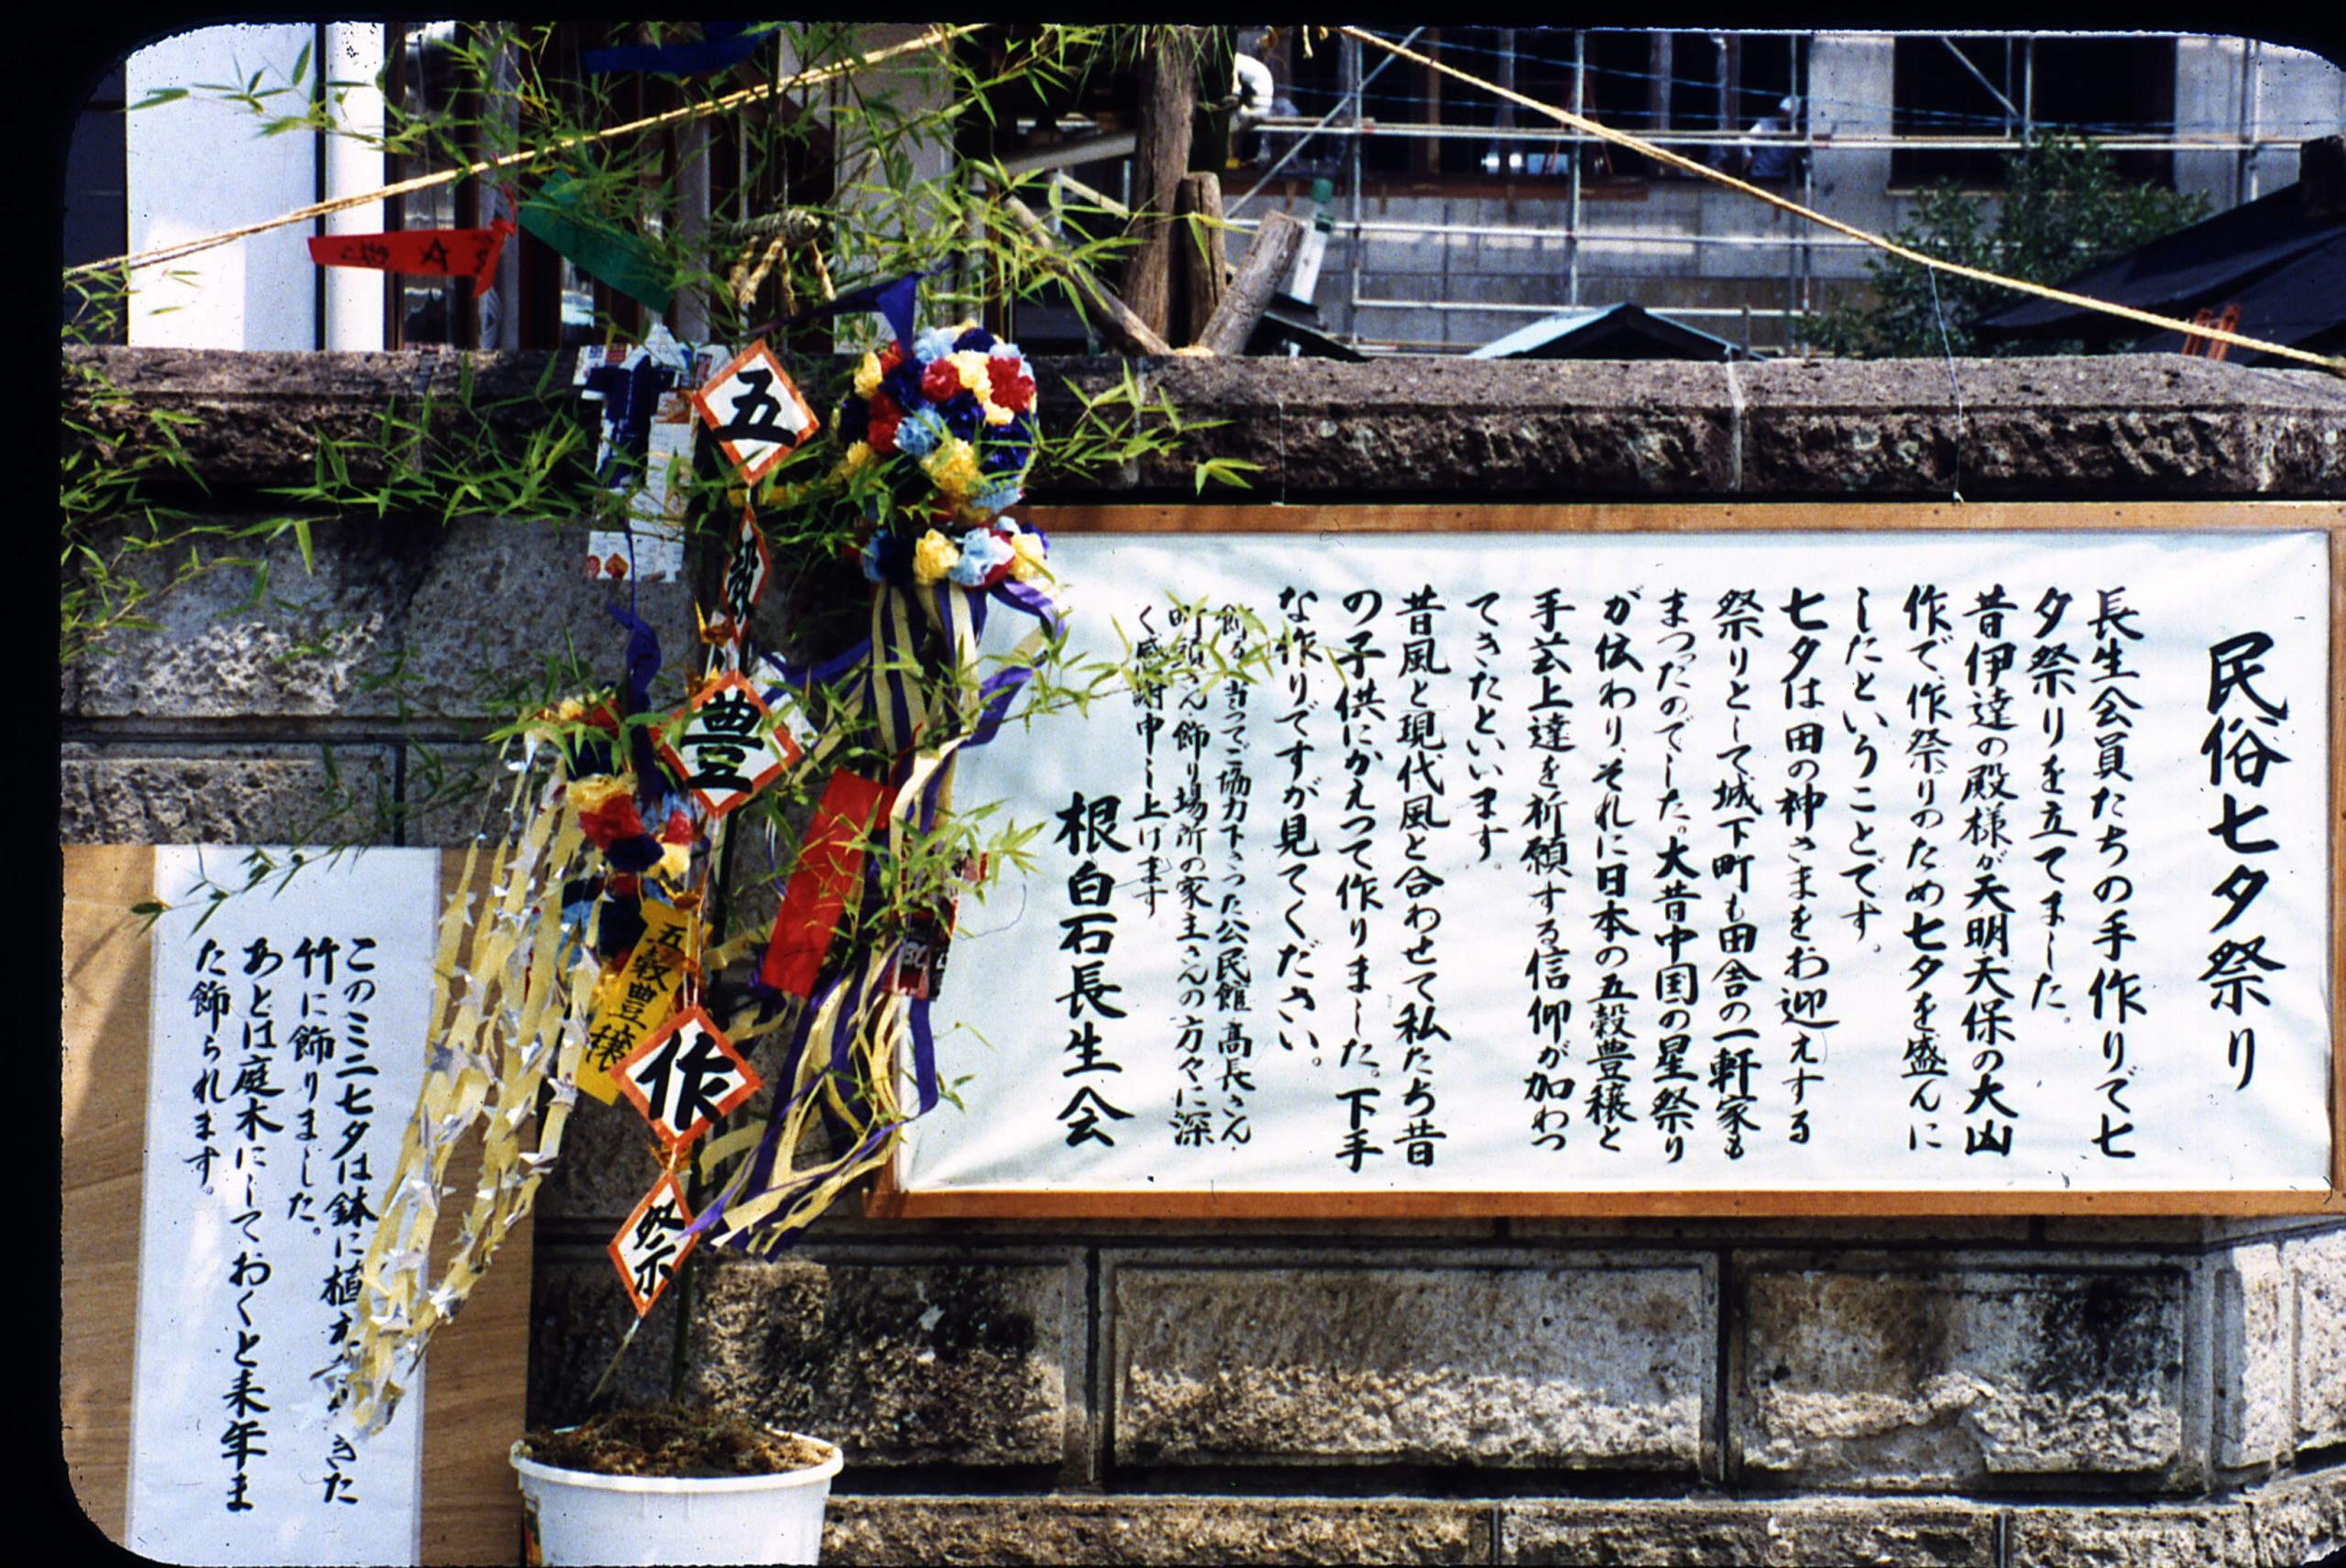 民俗七夕祭り
長生会員たちの手作りで七
夕祭りを立てました。
昔伊達の殿様が天明天保の大凶
作で、作祭りのため七夕を盛んに
したということです。
七夕は田の神さまをお迎えする
祭りとして城下町も田舎の一軒家も
まつったのでした。大昔中国の星祭り
が伝わり、それに日本の五穀豊穣と
手芸上達を祈願する信仰が加わっ
てきたといいます。
昔風と現代風と合わせて私たち昔
の子供にかえって作りました。下手
な作りですが見てください。
飾るに当ってご協力下さった公民館 高長さん、
町頭さん飾り場所の家主さんの方々に深
く感謝申し上げます
根白石長生会
五
穀
豊
作
祭
五穀豊穣
このミニ七夕は鉢に植
きた
竹に飾りました。
あとは庭木にしておくと来年ま
た飾られます。